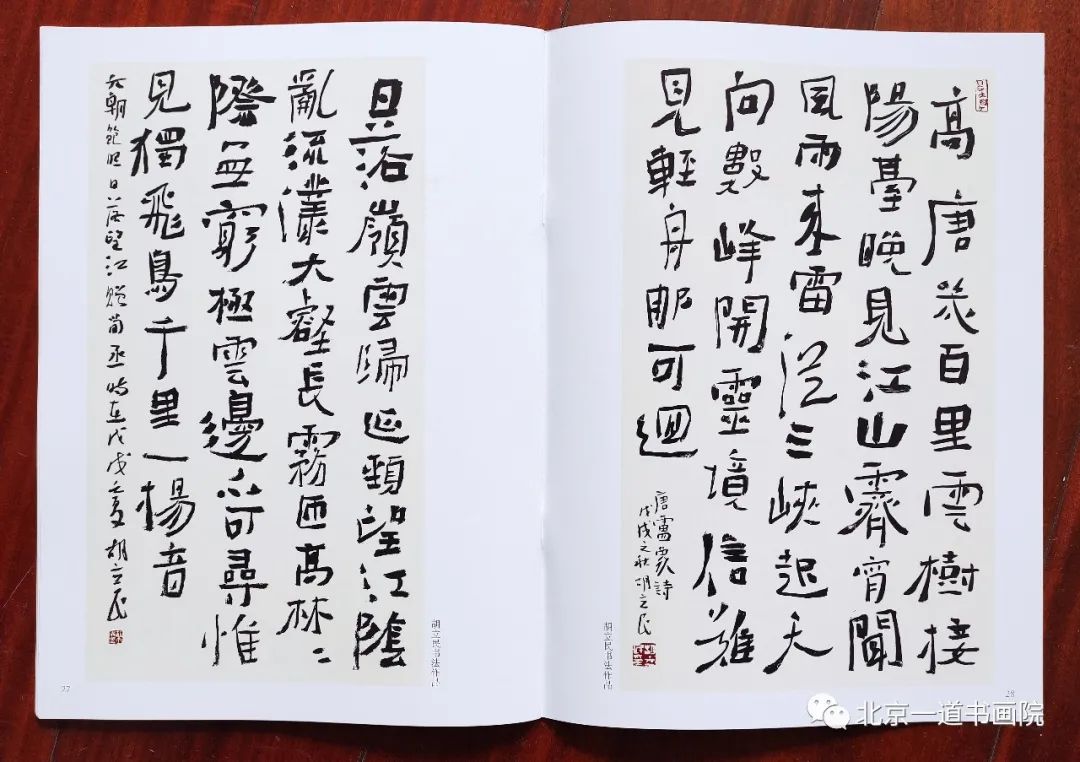 日落嶺雲歸延頸望江陰
亂流灇大壑長霧匝高林〻
際無窮極雲邊不可尋惟
見獨飛鳥千里一揚音
六朝鮑昭日落望江贈荀丞時在戊戌之夏胡立民
胡立民书法作品
27
高唐幾百里雲樹接
陽臺晚見江山霽宵聞
風雨來雷從三峽起天
向數峰開靈境信難
見輕舟那可迴
唐 詩
戊戌之秋胡立民
胡立民书法作品
28
北京一道书画院